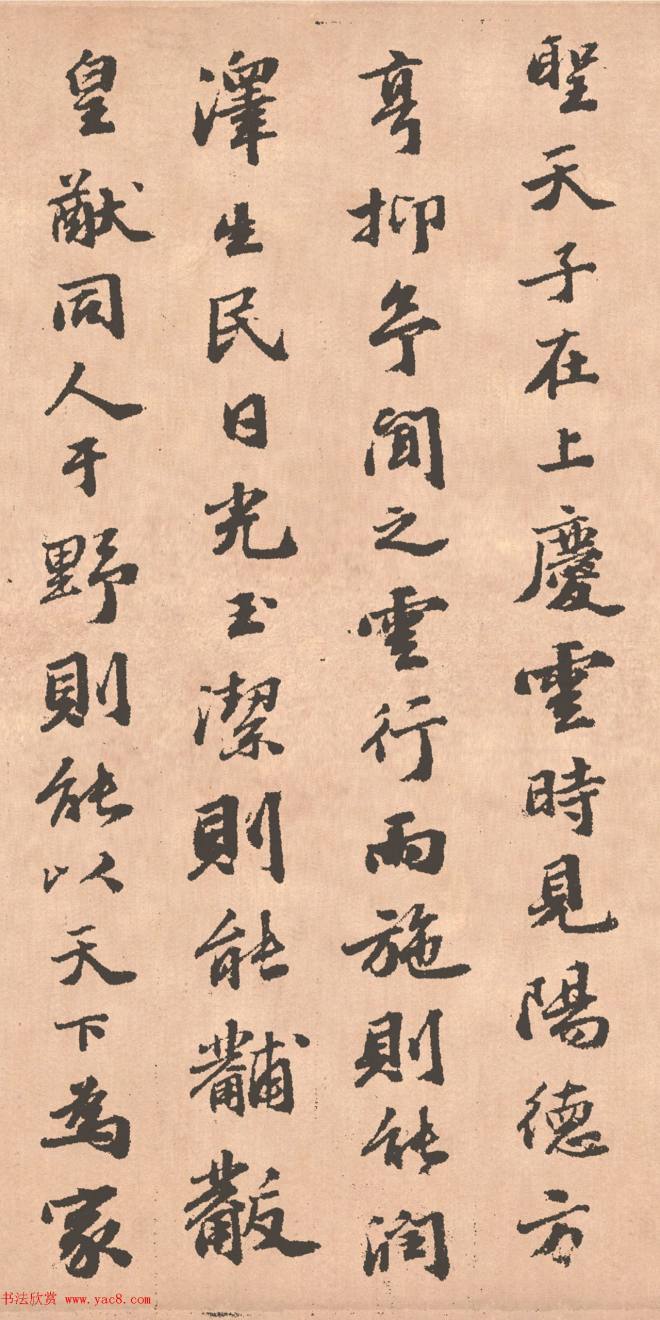 聖天子在上慶雲時見陽德方
亨抑予聞之雲行雨施則能潤
澤生民日光玉潔則能黼黻
皇猷同人于野則能以天下為家
书法欣赏 www.yac8.com